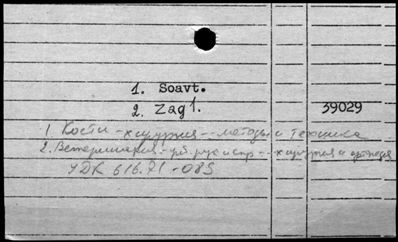 1. Soavt.
2. Zagl. 39029
1. Кости - хирургия -- методы и техника
2. Ветеринария - - хирургия и
УДК 616.71-089